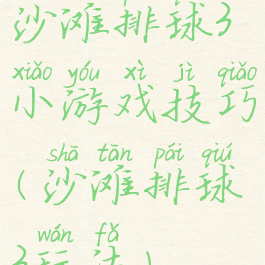 沙滩排球3
xiǎo yóu xì jì qiǎo
小游戏技巧
shā tān pái qiú
(沙滩排球
wán fǎ
3玩法)